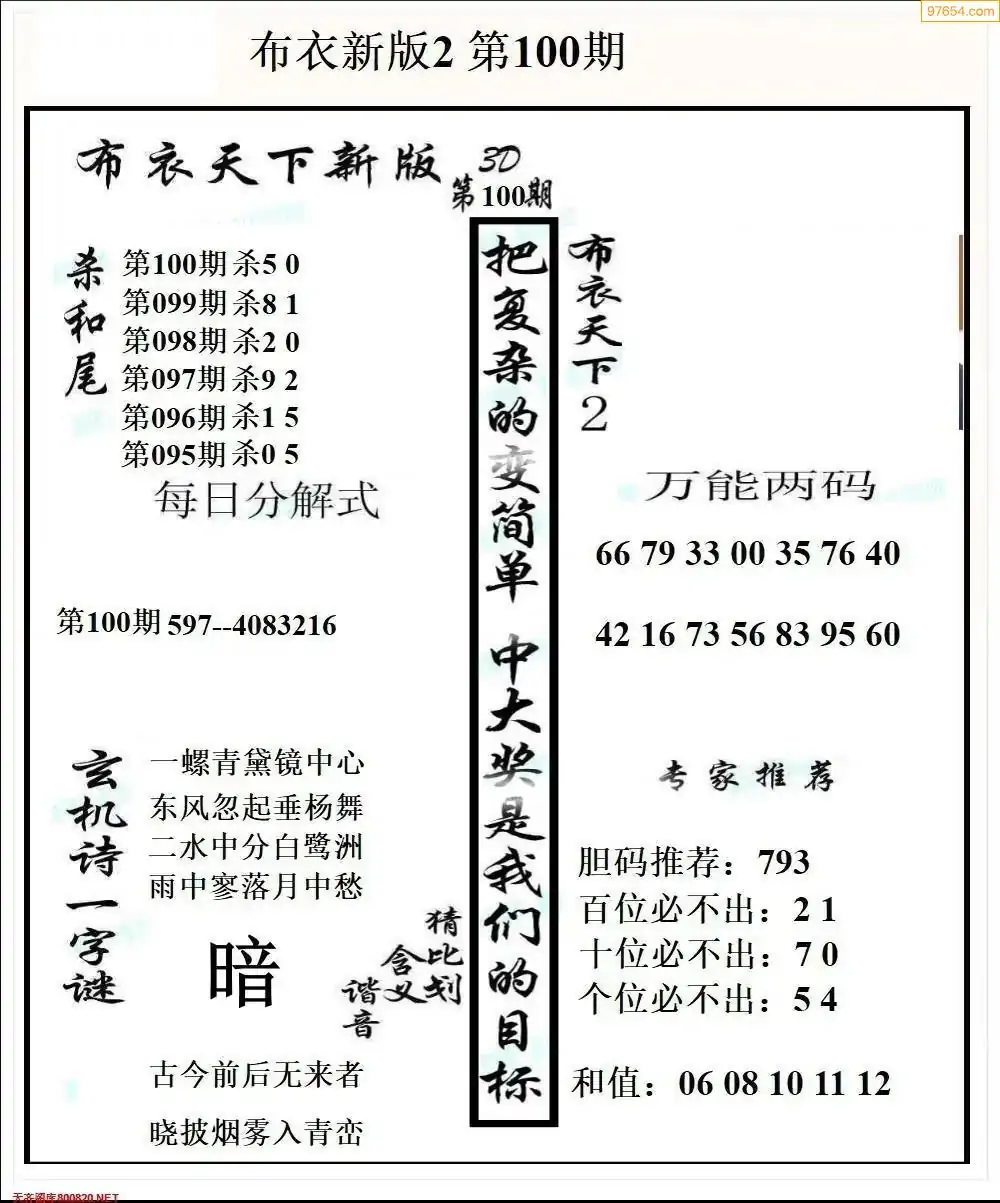 97654.com
布衣新版2 第100期
布衣天下新版
3D
第100期
杀和尾
第100期 杀5 0
第099期 杀8 1
第098期 杀2 0
第097期 杀9 2
第096期 杀1 5
第095期 杀0 5
每日分解式
第100期 597--4083216
玄机诗一字谜
一螺青黛镜中心
东风忽起垂杨舞
二水中分白鹭洲
雨中寥落月中愁
暗
猜比划
含义
谐音
古今前后无来者
晓披烟雾入青峦
把复杂的变简单 中大奖是我们的目标
布衣天下2
万能两码
66 79 33 00 35 76 40
42 16 73 56 83 95 60
专家推荐
胆码推荐：793
百位必不出：2 1
十位必不出：7 0
个位必不出：5 4
和值：06 08 10 11 12
天齐图库800820.NET